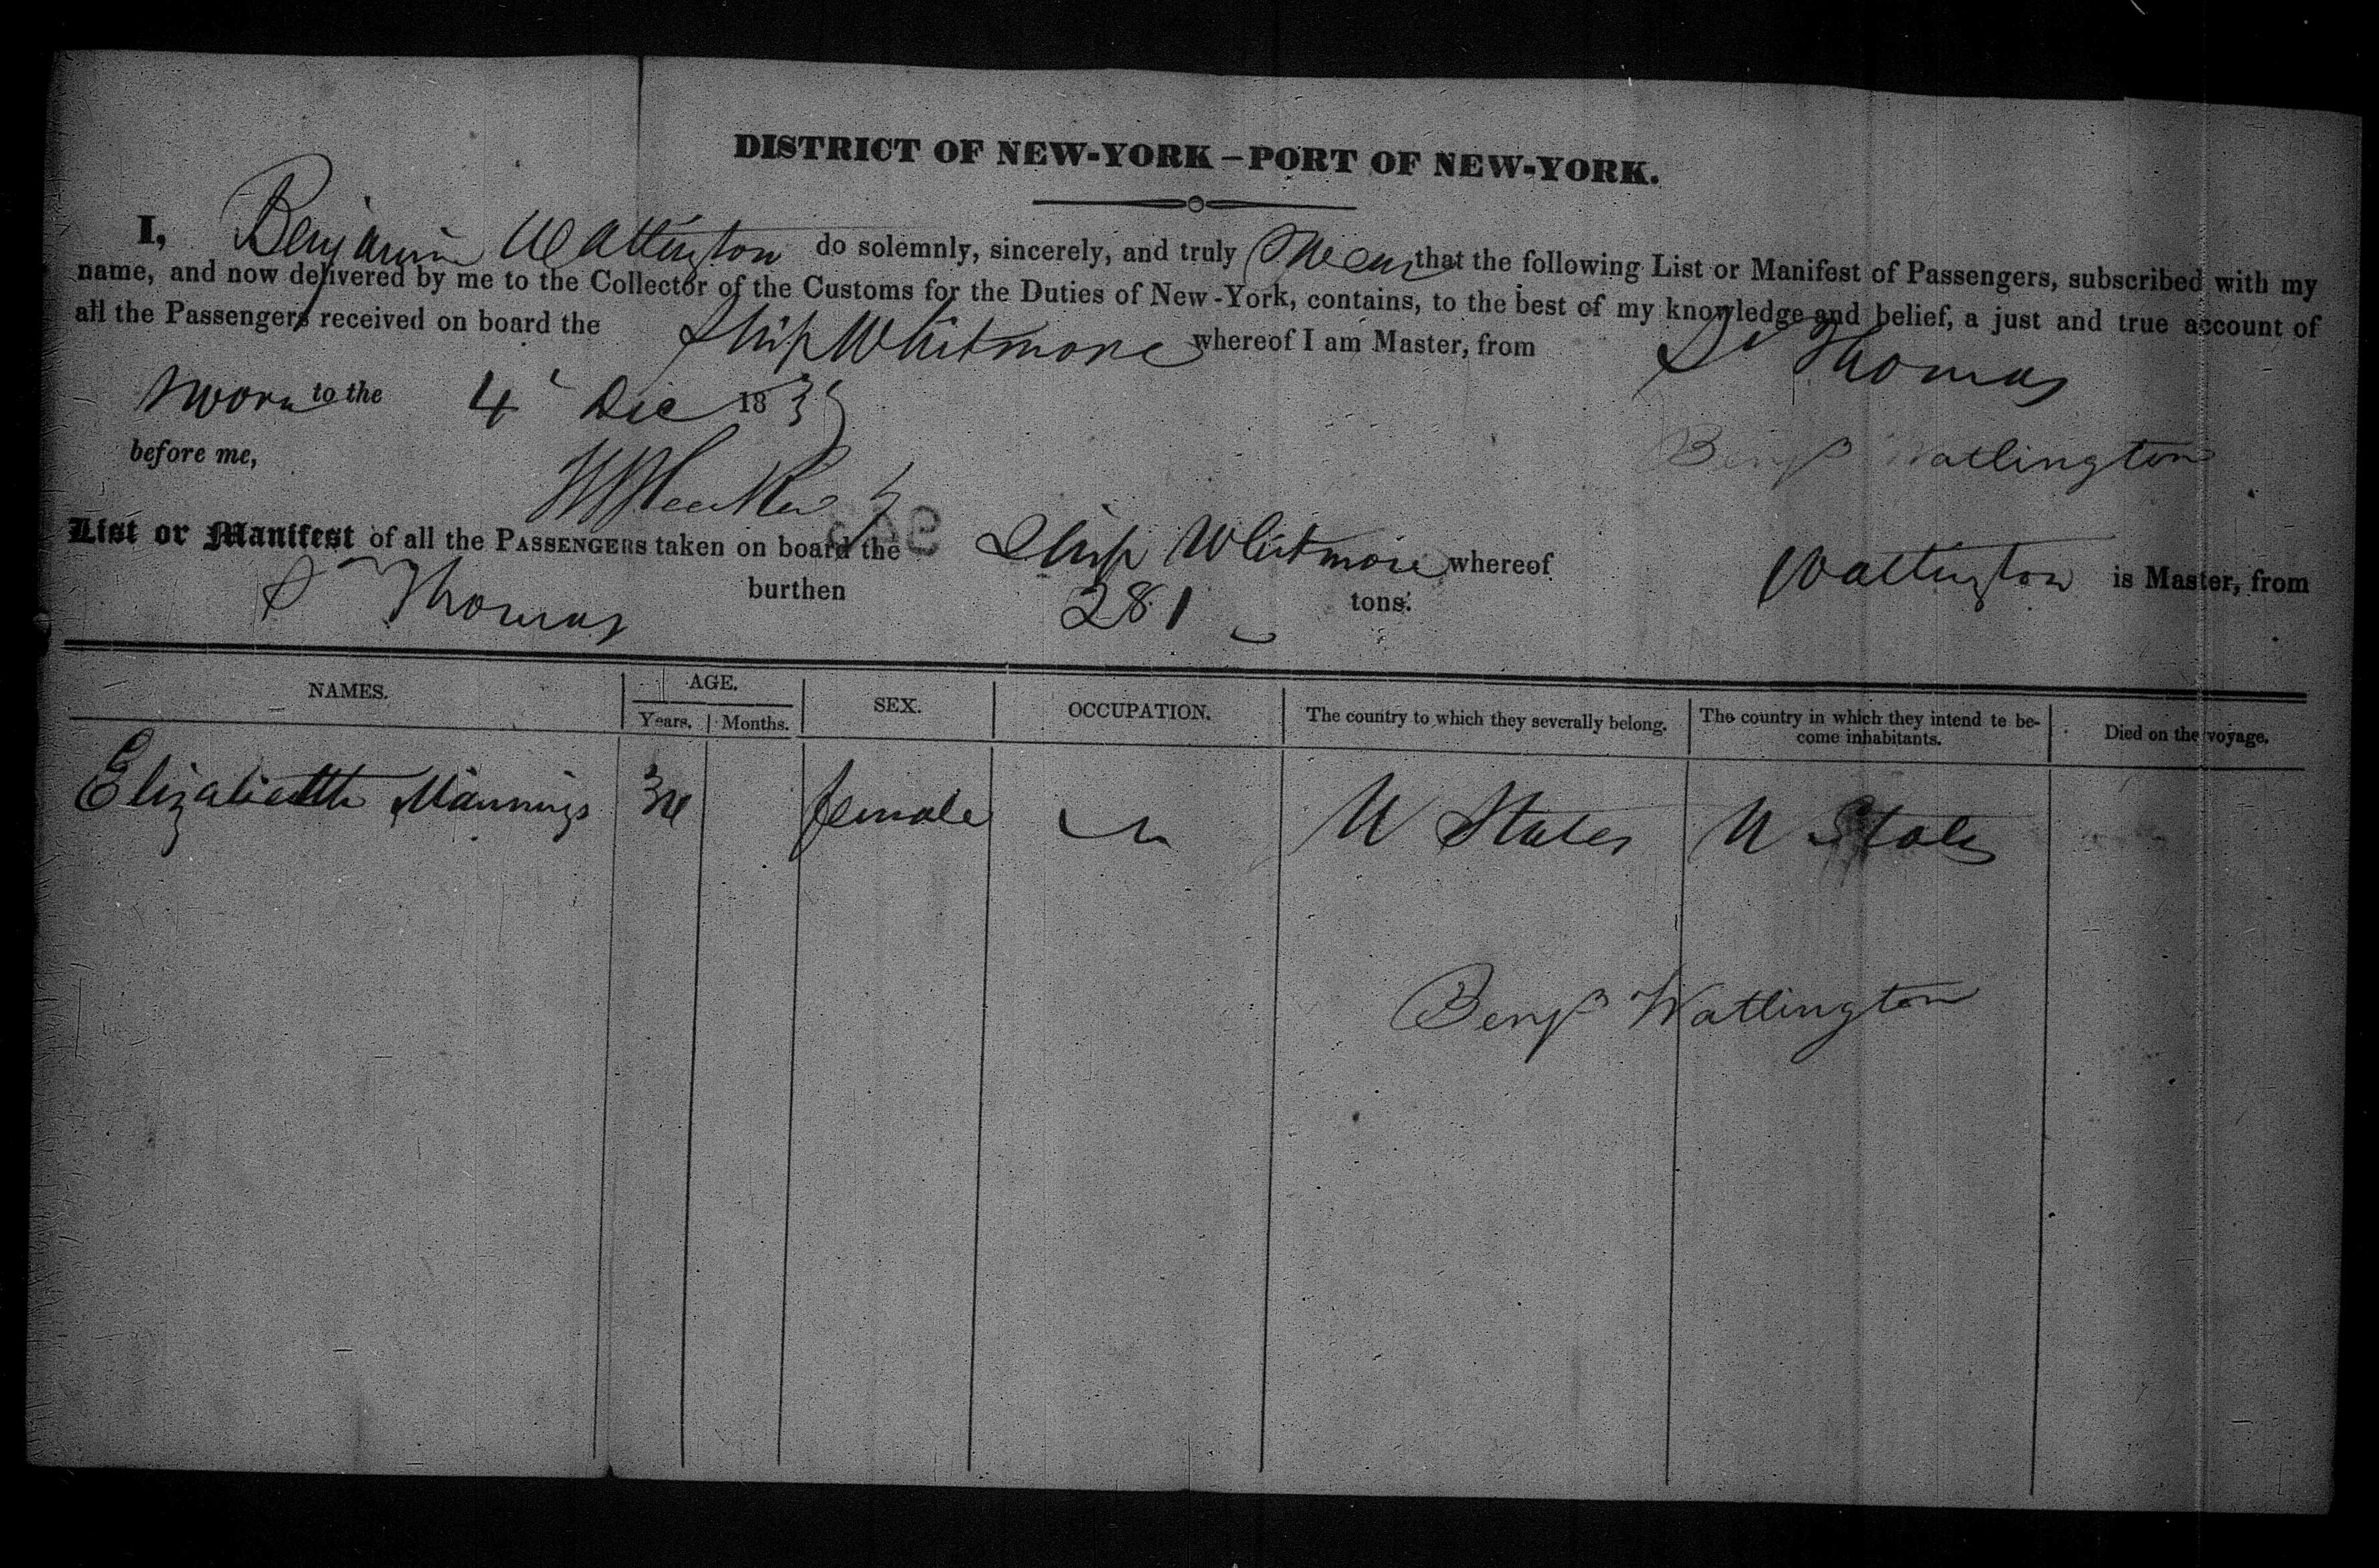 DISTRICT OF NEW-YORK – PORT OF NEW-YORK.
I, Benjamin Watlington do solemnly, sincerely, and truly Swear that the following List or Manifest of Passengers, subscribed with my
name, and now delivered by me to the Collector of the Customs for the Duties of New-York, contains, to the best of my knowledge and belief, a just and true account of
all the Passengers received on board the Ship Whitmore whereof I am Master, from St Thomas
Sworn to the 4 Dec 183
before me, Benj Watlington
List or Manifest of all the PASSENGERS taken on board the Ship Whitmore whereof Watlington is Master, from
St Thomas burthen 281 tons.
NAMES. AGE. SEX. OCCUPATION. The country to which they severally belong. The country in which they intend te be-
come inhabitants. Died on the voyage.
Years. Months.
Elizabeth Mannings female U States U States
Benj Watlington